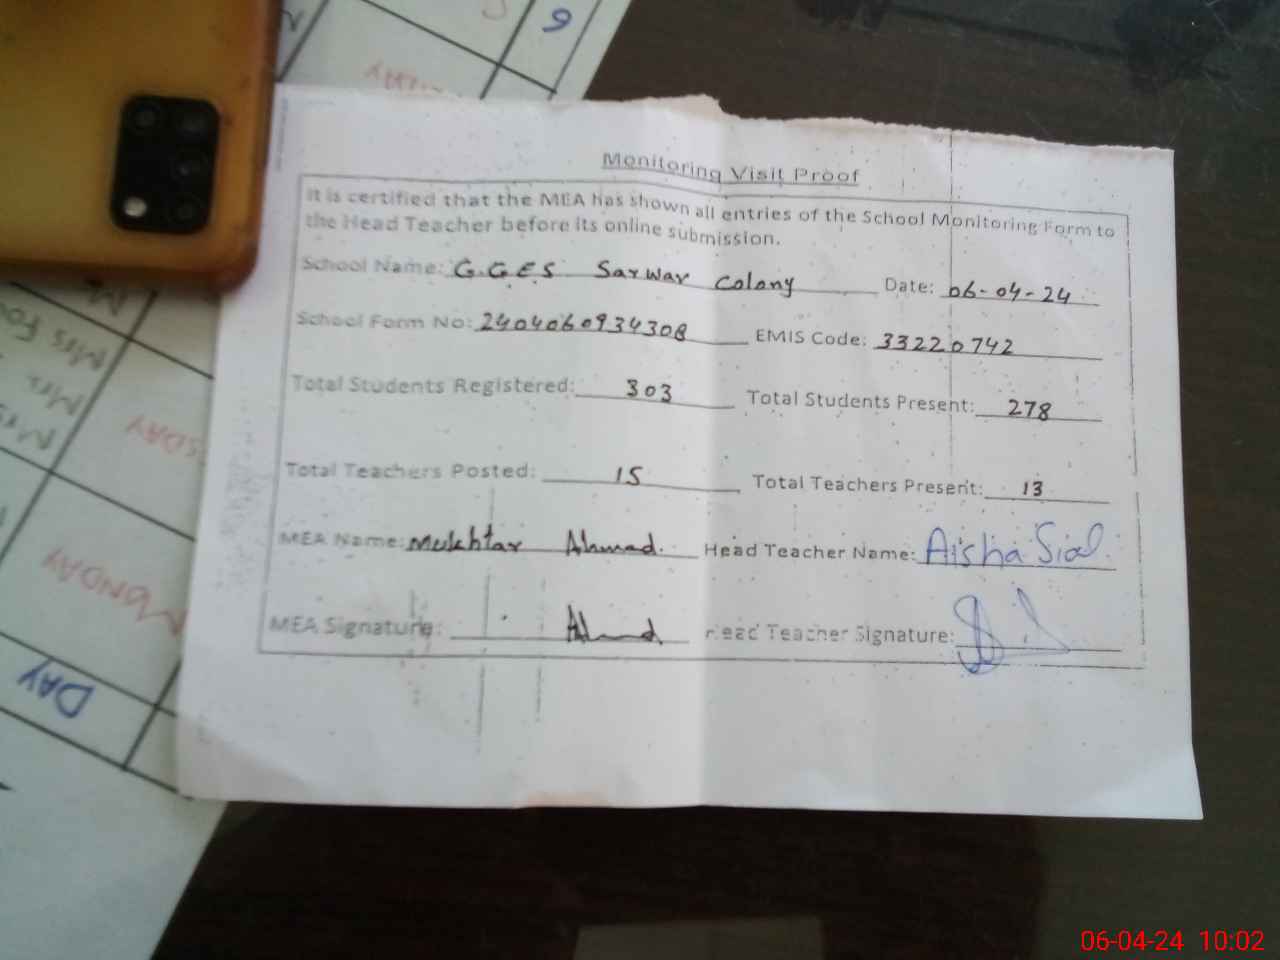 Monitoring Visit Proof
It is certified that the MEA has shown all entries of the School Monitoring Form to
the Head Teacher before its online submission.
School Name: G.GES Sarwar Colony Date: 06-04-24
School Form No: 2404060934308 EMIS Code: 33220742
Total Students Registered: 303 Total Students Present: 278
Total Teachers Posted: 15 Total Teachers Present: 13
MEA Name: Mukhtar Ahmad. Head Teacher Name: Aisha Sial
MEA Signature: Ahmad Head Teacher Signature:
6
MONDAY
DAY
06-04-24 10:02